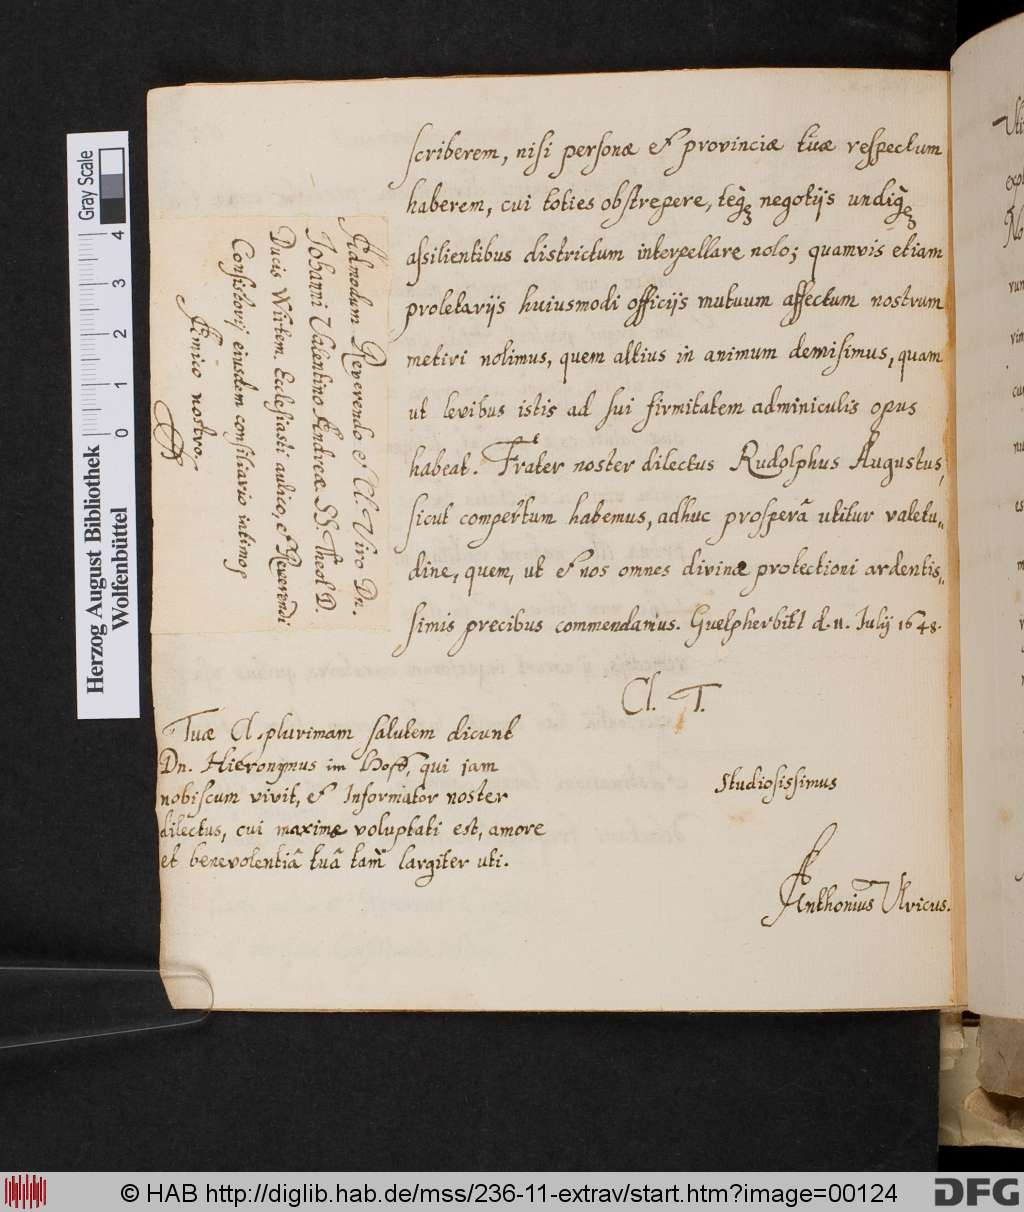 scriberem, nisi personæ et provinciæ tuæ respectum
haberem, cui toties obstrepere, teq; negotijs undiq;
assilientibus districtum interpellare nolo; quamvis etiam
proletarijs huiusmodi officijs mutuum affectum nostrum
metiri nolimus, quem altius in animum demisimus, quam
ut levibus istis ad sui firmitatem adminiculis opus
habeat. Frater noster dilectus Rudolphus Augustus,
sicut compertum habemus, adhuc prosperâ utitur valetu„
dine, quem, ut et nos omnes divinæ protectioni ardentis„
simis precibus commendamus. Guelpherbiti d. 11. Julij 1648.
Cl. T.
Studiosissimus
Anthonius Ulricus.
Tuæ Cl. plurimam salutem dicunt
Dn. Hieronymus im Hoff, qui jam
nobiscum vivit, et Informator noster
dilectus, cui maximæ voluptati est, amore
et benevolentiâ tuâ tam largiter uti.
Admodum Reverendo et Cl. Viro Dn.
Iohanni Valentino Andreæ SS. Theol. D.
Ducis Wirtem. Ecclesiasti aulico, et Reverendi
Consistorij eiusdem consiliario intimo,
Amico nostro.
Herzog August Bibliothek
Wolfenbüttel
Gray Scale
0 1 2 3 4
© HAB http://diglib.hab.de/mss/236-11-extrav/start.htm?image=00124
DFG